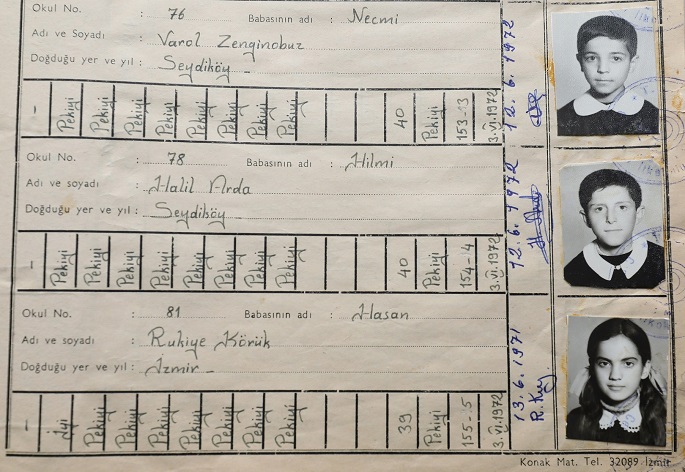 Okul No. : 76 Babasının adı : Necmi
Adı ve Soyadı : Varol Zenginobuz
Doğduğu yer ve yıl : Seydiköy
- Pekiyi Pekiyi Pekiyi Pekiyi Pekiyi Pekiyi 40 Pekiyi 153-3 3.VI.1972
12.6.1972
Okul No. : 78 Babasının adı : Hilmi
Adı ve soyadı : Halil Arda
Doğduğu yer ve yıl : Seydiköy
- Pekiyi Pekiyi Pekiyi Pekiyi Pekiyi Pekiyi Pekiyi 40 Pekiyi 154-4 3.VI.1972
12.6.1972
Okul No. : 81 Babasının adı : Hasan
Adı ve soyadı : Rukiye Körük
Doğduğu yer ve yıl : İzmir
- İyi Pekiyi Pekiyi Pekiyi Pekiyi Pekiyi Pekiyi 39 Pekiyi 155-5 3.VI.1972
13.6.1971
Konak Mat. Tel. 32089 İzmir